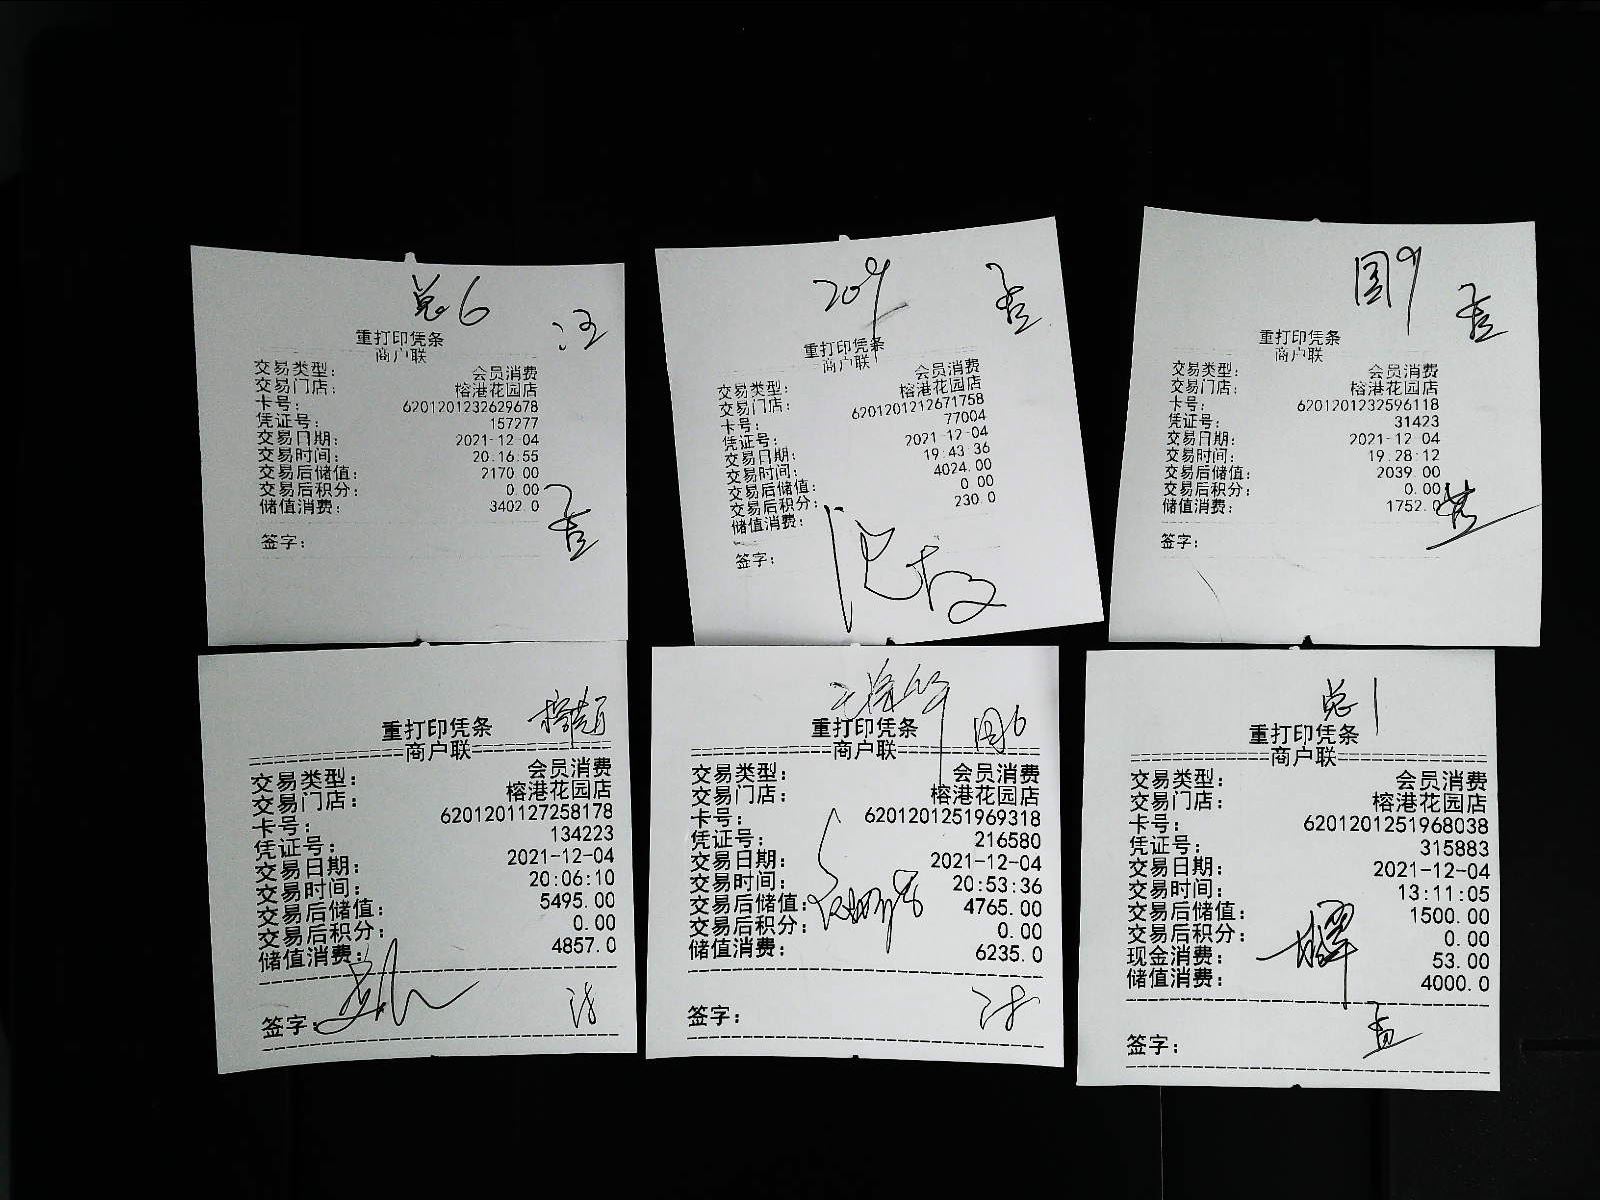 总6
汪
重打印凭条
商户联
交易类型: 会员消费
交易门店: 榕港花园店
卡号: 6201201232629678
凭证号: 157277
交易日期: 2021-12-04
交易时间: 20:16:55
交易后储值: 2170.00
交易后积分: 0.00
储值消费: 3402.0
签字:
209
重打印凭条
商户联
交易类型: 会员消费
交易门店: 榕港花园店
卡号: 6201201212671758
凭证号: 77004
交易日期: 2021-12-04
交易时间: 19:43:36
交易后储值: 4024.00
交易后积分: 0.00
储值消费: 230.0
签字:
国9
重打印凭条
商户联
交易类型: 会员消费
交易门店: 榕港花园店
卡号: 6201201232596118
凭证号: 31423
交易日期: 2021-12-04
交易时间: 19:28:12
交易后储值: 2039.00
交易后积分: 0.00
储值消费: 1752.0
签字:
重打印凭条
商户联
交易类型: 会员消费
交易门店: 榕港花园店
卡号: 6201201127258178
凭证号: 134223
交易日期: 2021-12-04
交易时间: 20:06:10
交易后储值: 5495.00
交易后积分: 0.00
储值消费: 4857.0
签字:
国6
重打印凭条
商户联
交易类型: 会员消费
交易门店: 榕港花园店
卡号: 6201201251969318
凭证号: 216580
交易日期: 2021-12-04
交易时间: 20:53:36
交易后储值: 4765.00
交易后积分: 0.00
储值消费: 6235.0
签字:
总1
重打印凭条
商户联
交易类型: 会员消费
交易门店: 榕港花园店
卡号: 6201201251968038
凭证号: 315883
交易日期: 2021-12-04
交易时间: 13:11:05
交易后储值: 1500.00
交易后积分: 0.00
现金消费: 53.00
储值消费: 4000.0
签字: